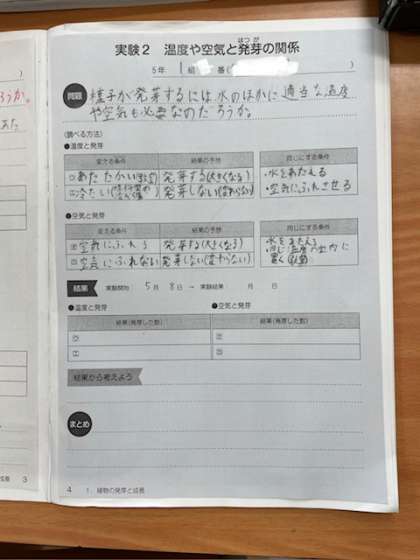 実験2 温度や空気と発芽の関係
はつが
5年 1組 番(
問題
種子が発芽するには水のほかに適当な温度
や空気も必要なのだろうか。
〈調べる方法〉
●温度と発芽
変える条件 結果の予想 同じにする条件
あたたかい 発芽する(大きくなる) ・水をあたえる
冷たい 発芽しない(変わらない) ・空気にふれさせる
●空気と発芽
変える条件 結果の予想 同じにする条件
空気にふれる 発芽する(大きくなる) ・水をあたえる
空気にふれない 発芽しない(変わらない)
結果 実験開始 5月8日 → 実験結果: 月 日
●温度と発芽 ●空気と発芽
結果(発芽した数) 結果(発芽した数)
結果から考えよう
まとめ
4 1. 植物の発芽と成長
3